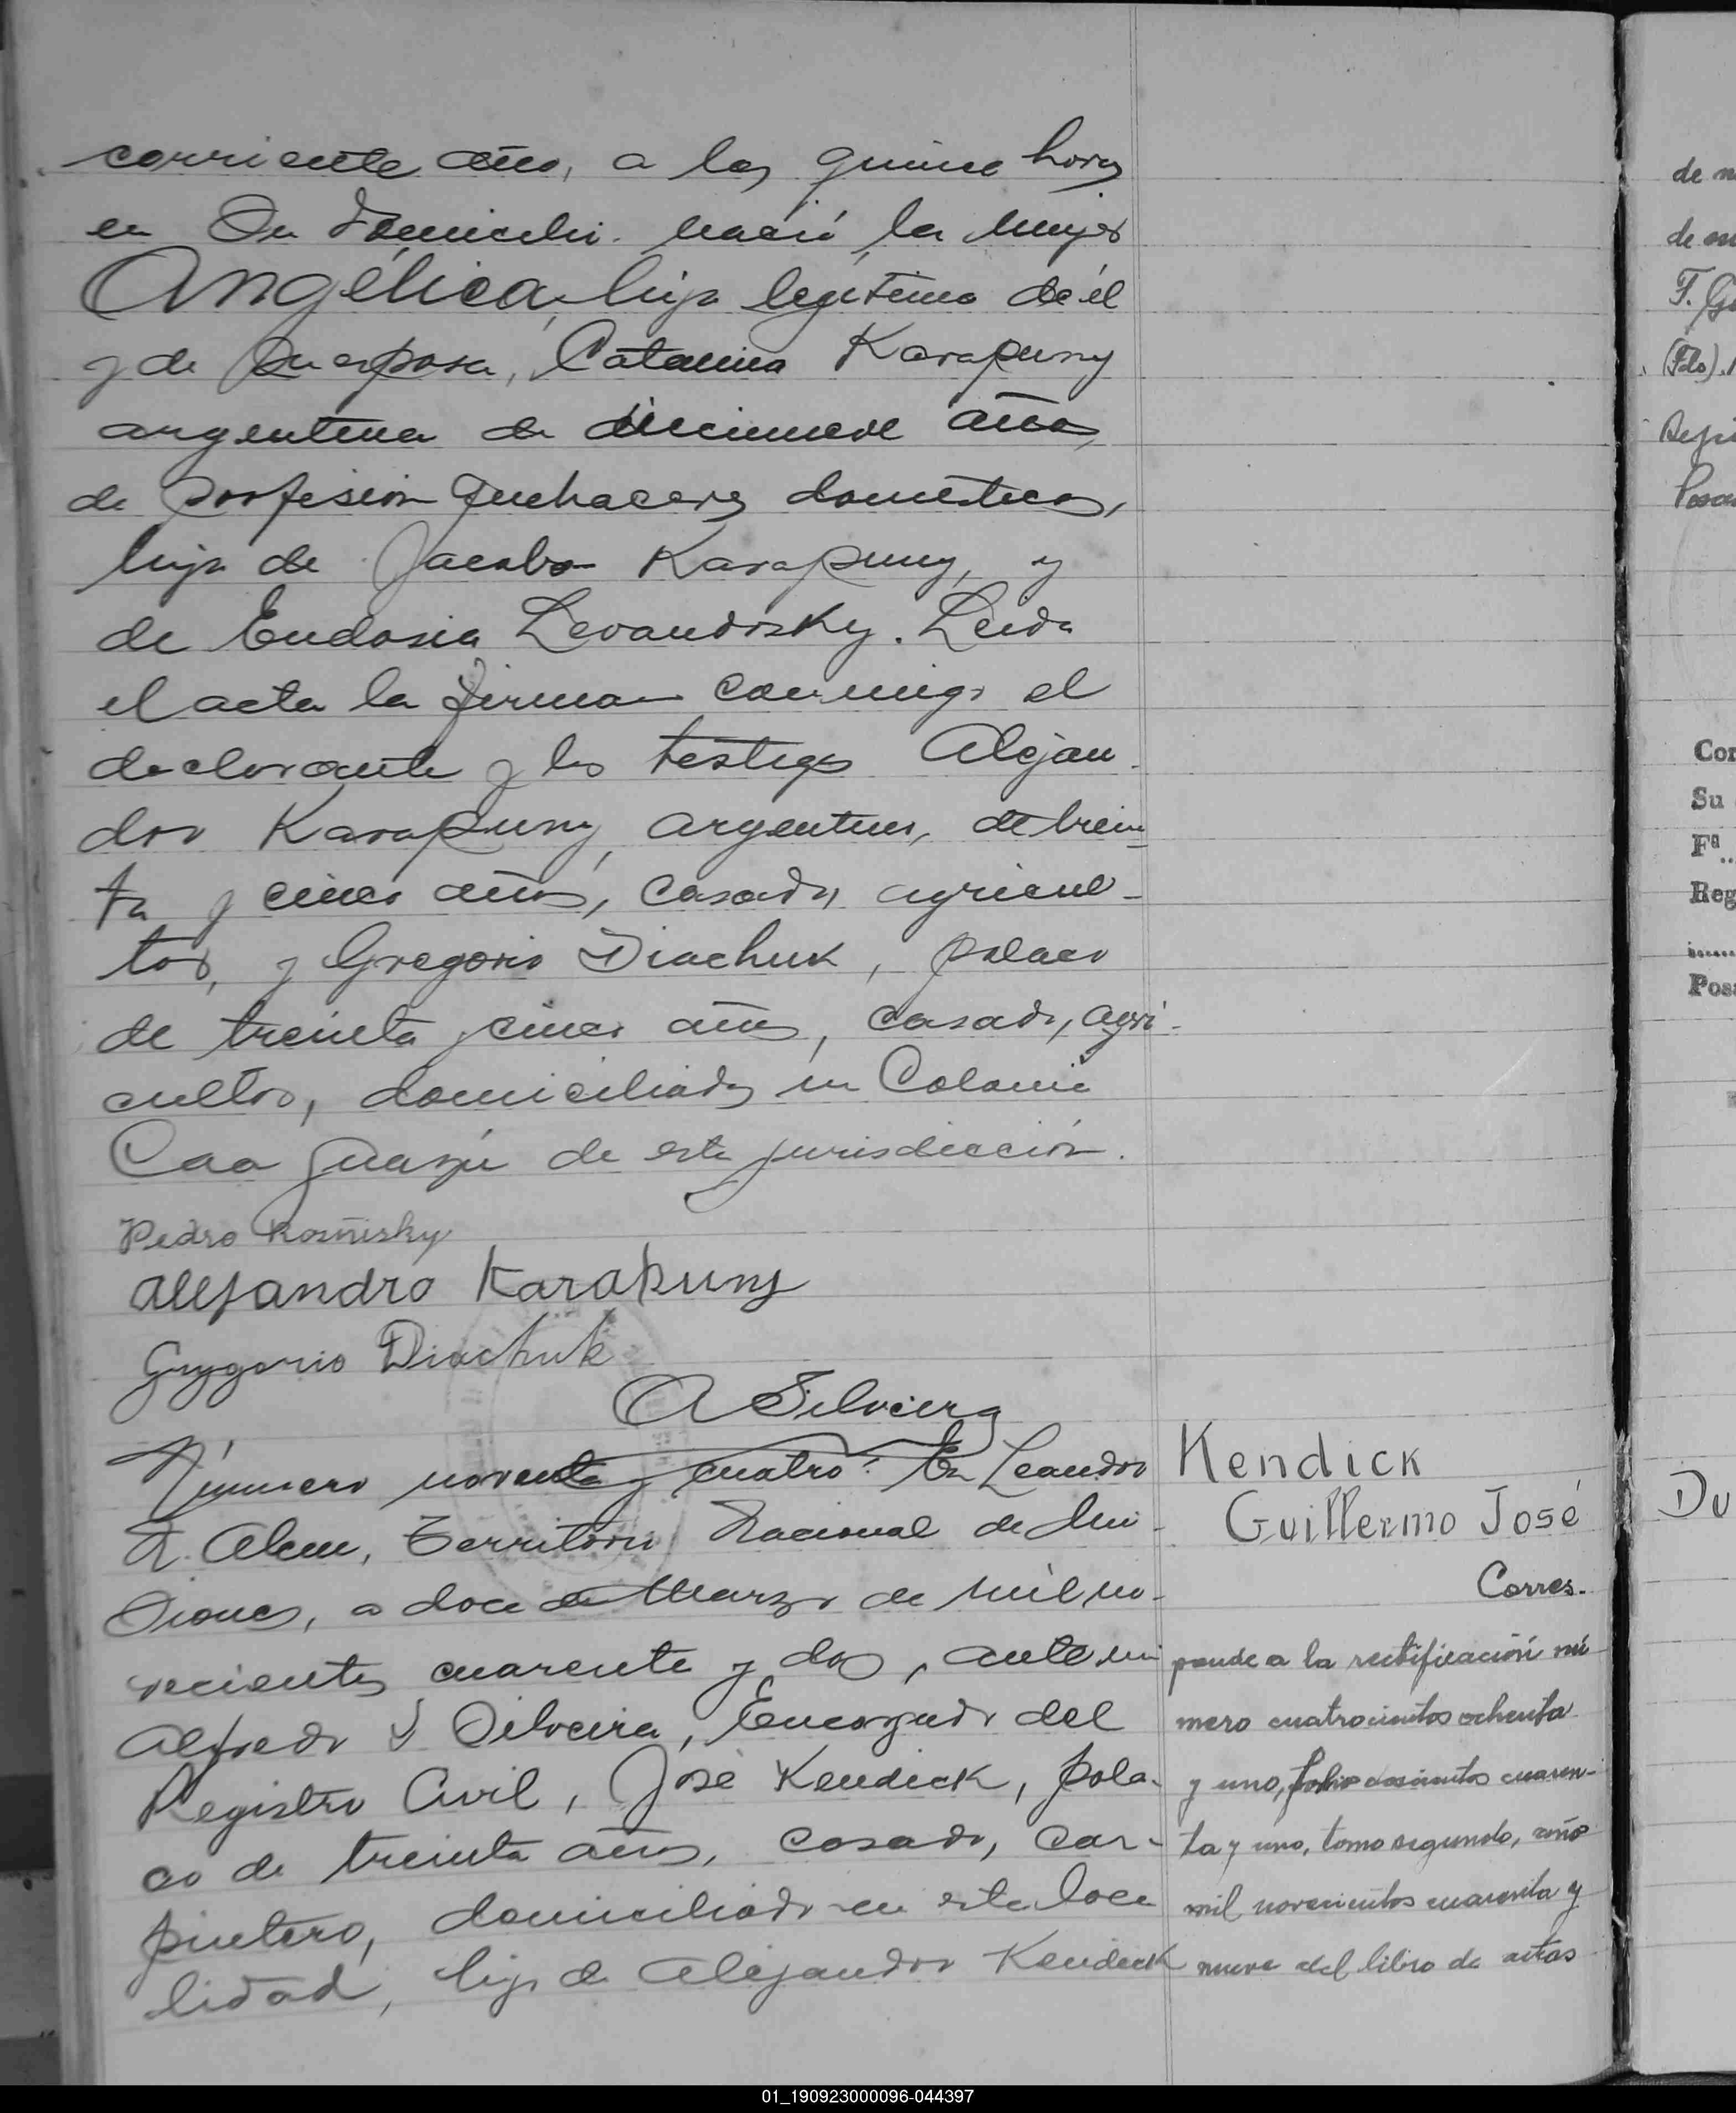 corriente año, a las quince horas
en su domicilio nació la mujer
Angélica, hija legitima de él
y de su esposa, Catalina Karapuny
argentina de diecinueve años,
de profesión quehaceres domesticos,
hija de Jacobo Karapuny, y
de Eudosia Levandosky. Leida
el acta la firman conmigo el
declarante y los testigos Alejan-
dro Karapuny, argentino, de trein-
ta y cinco años, casado, agricul-
tor, y Gregorio Diachuk, polaco
de treinta y cinco años, casado, agri-
cultor, domiciliados en Colonia
Caa Guazú de esta jurisdicción.
Pedro
Alejandro Karapuny
Grygorio Diachuk
A Silveira
Número noventa y cuatro: En Leandro
N. Alem, Territorio Nacional de Mi-
siones, a doce de Marzo de mil no-
vecientos cuarenta y dos, ante mi
Alfredo Silveira, Encargado del
Registro Civil, José Kendick, pola-
co de treinta años, casado, car-
pintero, domiciliado en esta loca
lidad, hijo de Alejandro Kendick
Kendick
Guillermo José
Corres-
ponde a la rectificación nú
mero cuatrocientos ochenta
y uno, folio doscientos cuaren-
ta y uno, tomo segundo, año
mil novecientos cuarenta y
nueve del libro de actas
de
de
F.
(Fdo).
Cor
Su
Fª
Reg
Pos
Du
01_190923000096-044397